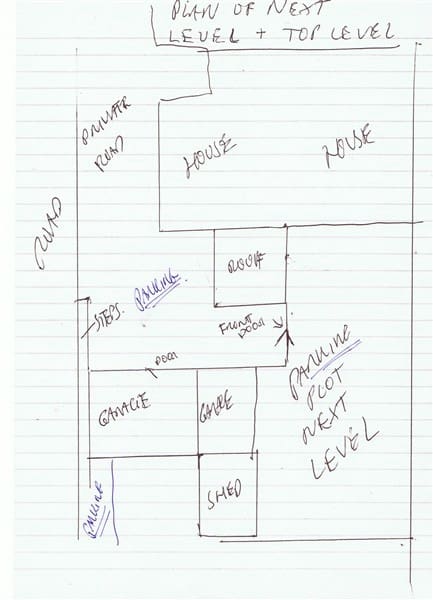 PLAN OF NEXT
LEVEL + TOP LEVEL
PRIVATE
ROAD
HOUSE
HOUSE
ROAD
ROOF
STEPS.
PARKING.
FRONT
DOOR
DOOR
PARKING
PLOT
NEXT
LEVEL
GARAGE
GARAGE
SHED
PARKING